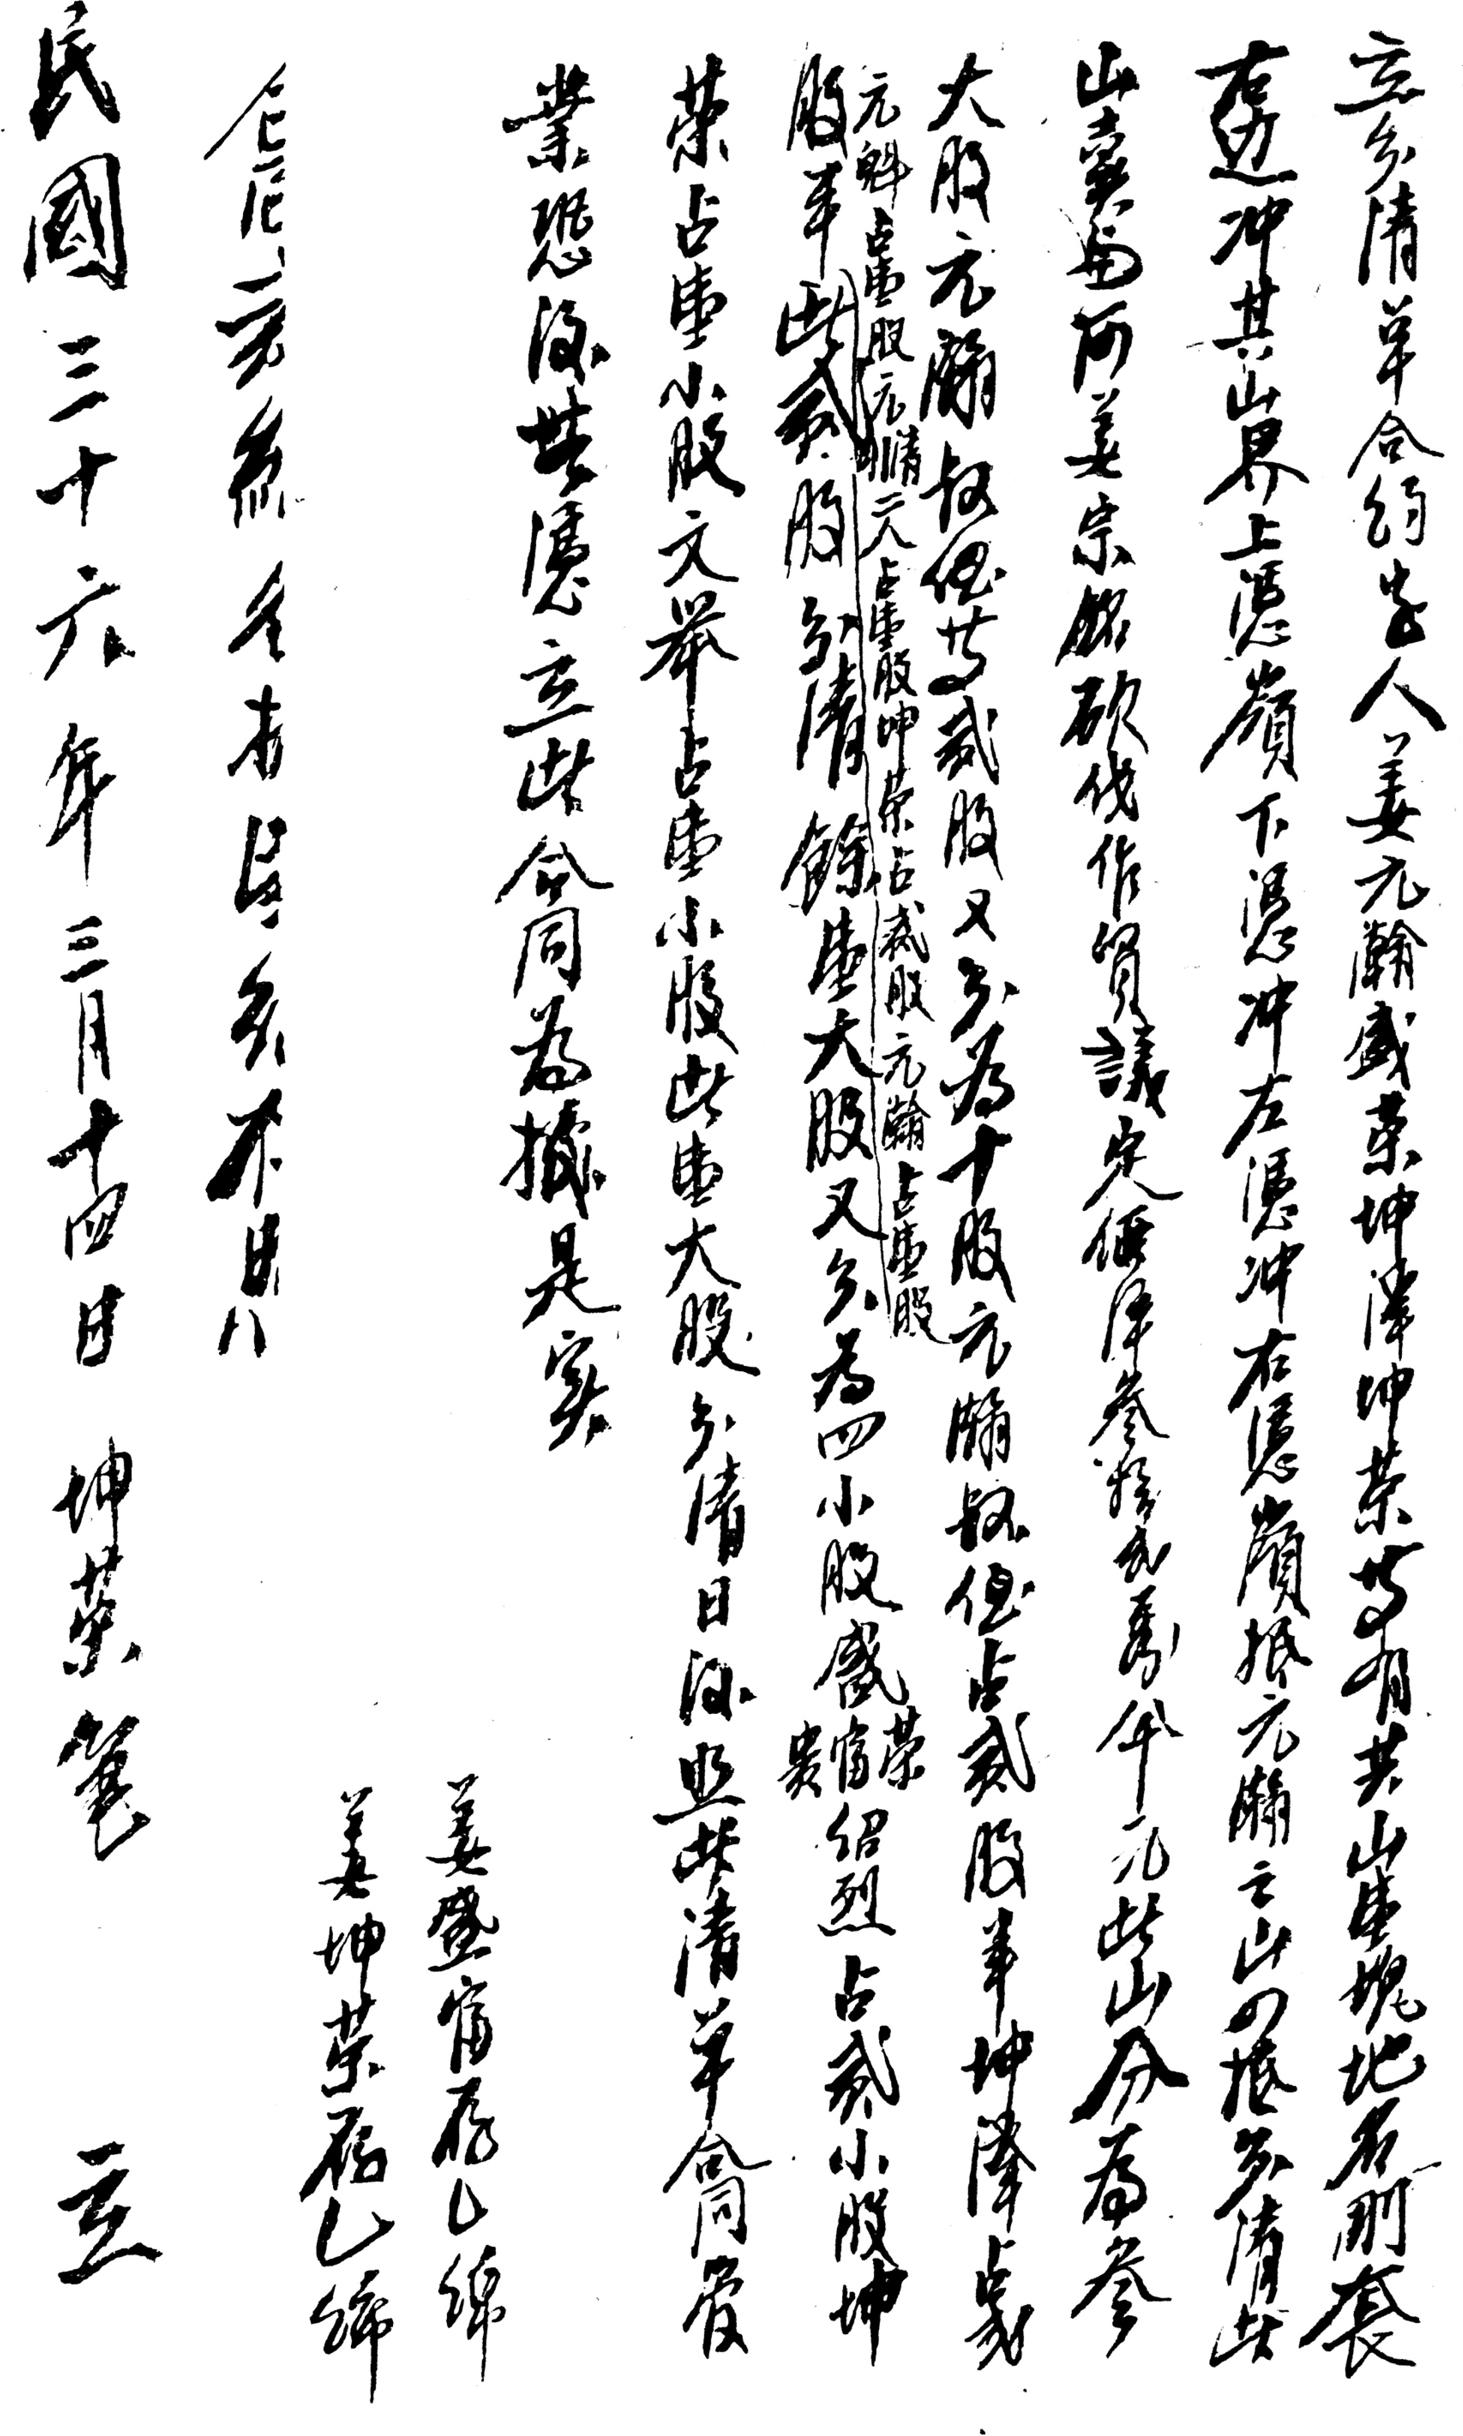 立分清单合约字人姜元瀚盛荣坤泽坤荣等有共山壹塊地名刚套
右边冲其山界上凭嶺下凭冲左凭冲右凭嶺抵元瀚之山四抵分清此
山賣与阿姜宗銘砍伐作貿議定價洋叁拾弍萬仟元此山分為叁
大股元瀚叔侄等貳股又分為十股元瀚叔侄占貳股半坤泽占弍
元魁占壹股元順清二人占壹股坤荣占貳股元瀚占壹股
股半此貳股分清餘壹大股又分為四小股盛荣富贵绍烈占貳小股坤
荣占壹小股文举占壹小股此壹大股分清日後照此清单合同管
業恐後無凭立此合同為據是实
姜盛富存乙纸
姜坤荣存乙纸
民國三十六年三月十四日 坤荣筆 立